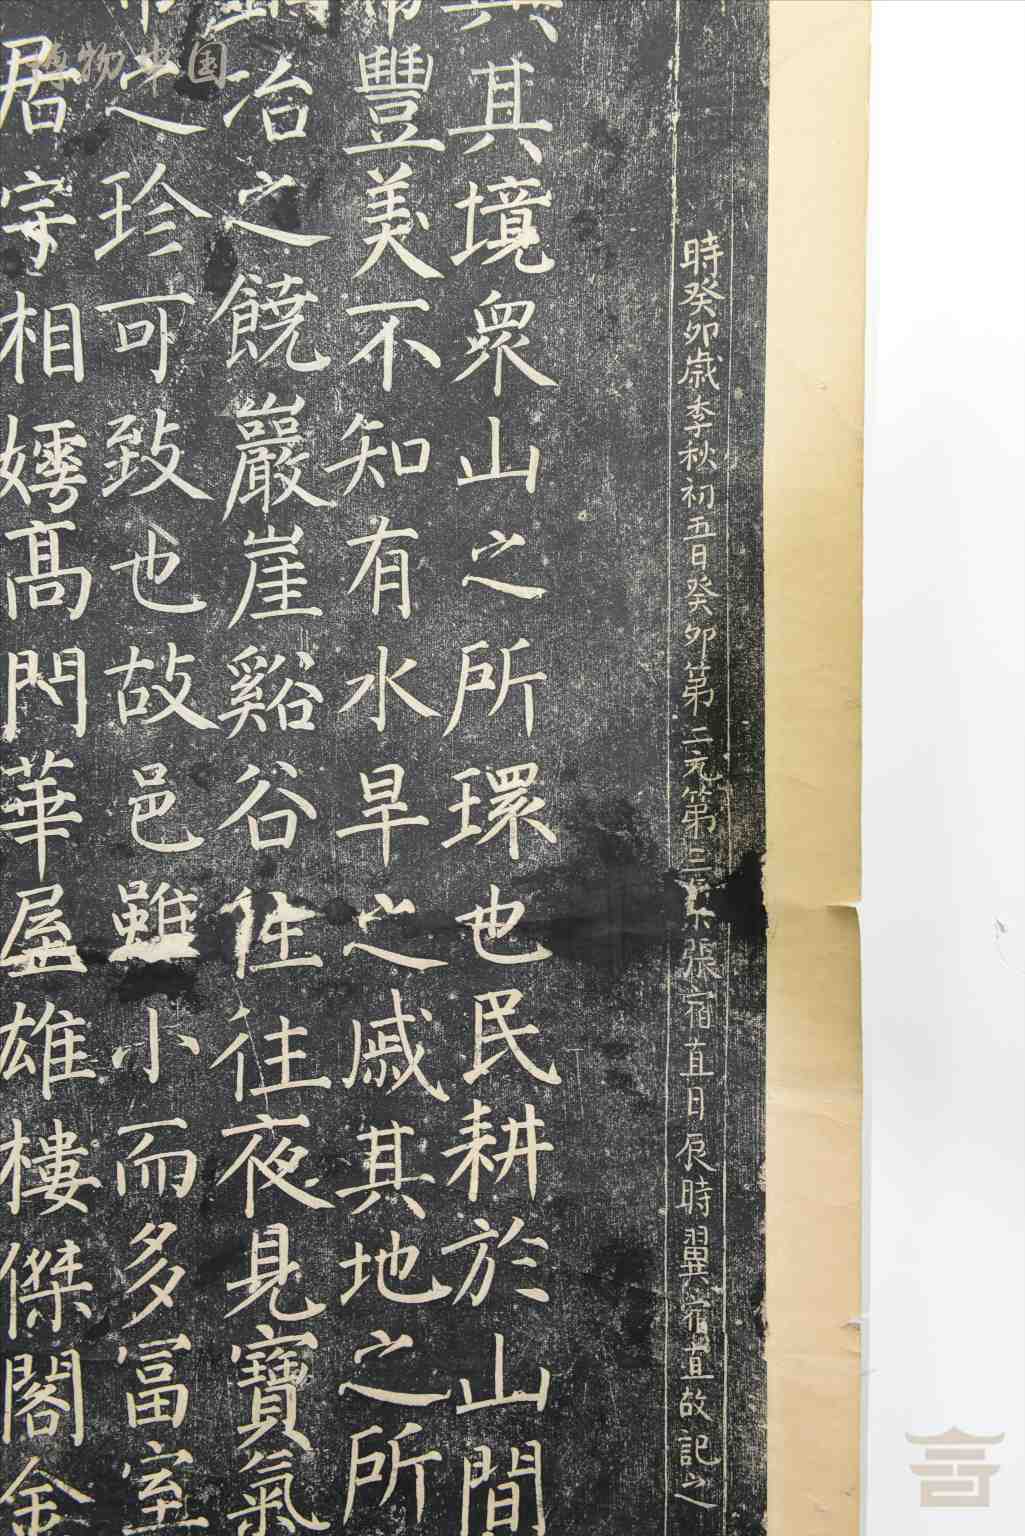 時癸卯歲季秋初五日癸卯第二元第三張宿直日辰時翼宿直故記之
其境衆山之所環也民耕於山間
豐美不知有水旱之戚其地之所
冶之饒巖崖谿谷往往夜見寶氣
之珍可致也故邑雖小而多富室
居宇相嫮高門華屋雄樓傑閣金
博物中国